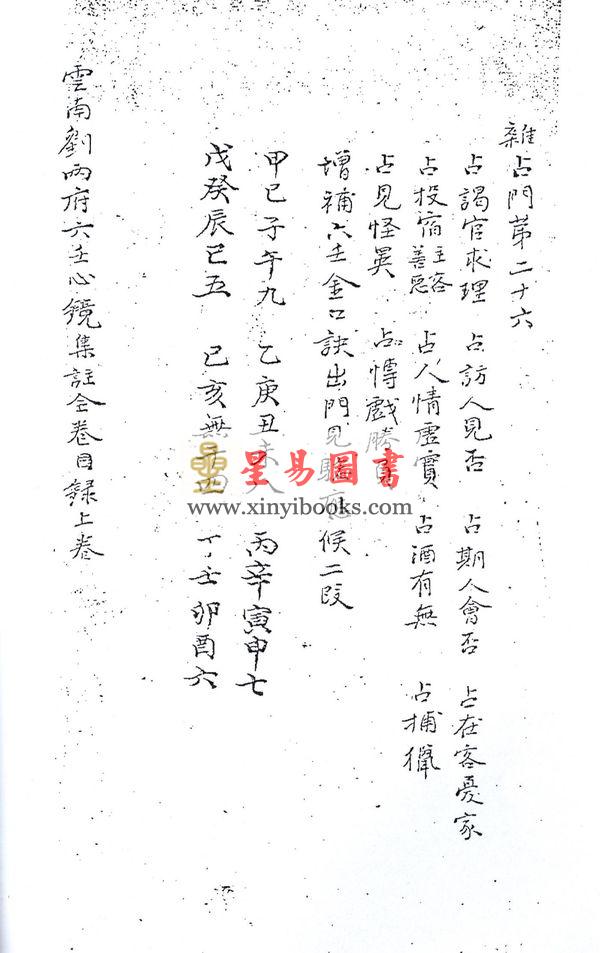 雜占門第二十六
占謁官求理 占訪人見否 占期人會否 占在客憂家
占投宿主客善惡 占人情虛實 占酒有無 占捕獵
占見怪異 占博戲勝
增補六壬金口訣出門見 候二段
甲己子午九 乙庚丑未八 丙辛寅申七
戊癸辰巳五 巳亥無干四 丁壬卯酉六
雲南劉丙府六壬心鏡集註全卷目錄上卷
星易圖書
www.xinyibooks.com